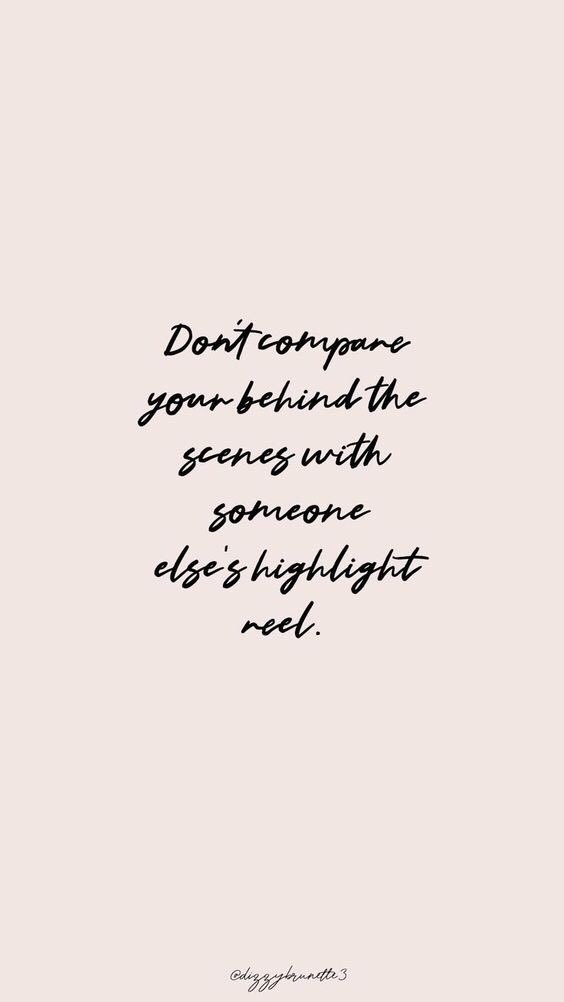 Don't compare
your behind the
scenes with
someone
else's highlight
reel.
@dizzybrunette3